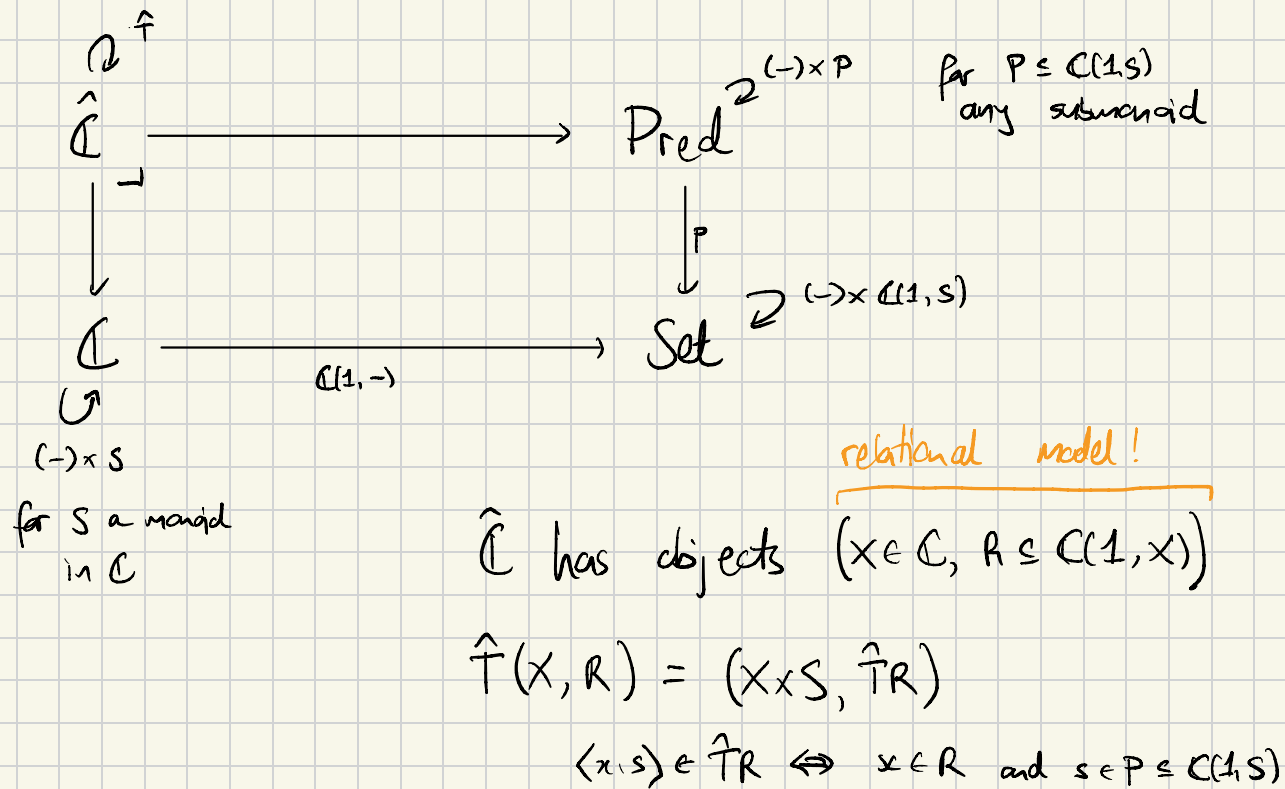 T̂
Ĉ
Pred
(-)× P
for P ⊆ ℂ(1,S)
any submonoid
p
ℂ
ℂ(1,-)
Set
(-)× ℂ(1,S)
(-)× S
for S a monoid
in ℂ
relational model!
Ĉ has objects (X ∈ ℂ, R ⊆ ℂ(1,X))
T̂(X,R) = (X×S, T̂R)
⟨x,s⟩ ∈ T̂R ⇔ x ∈ R and s ∈ P ⊆ ℂ(1,S)